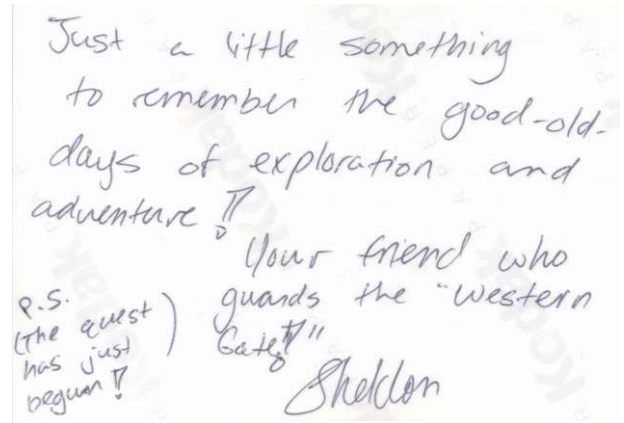 Just a little something
to remember the good-old-
days of exploration and
adventure!
Your friend who
guards the "Western
Gate!"
Sheldon
P.S.
(The quest
has just
begun!)